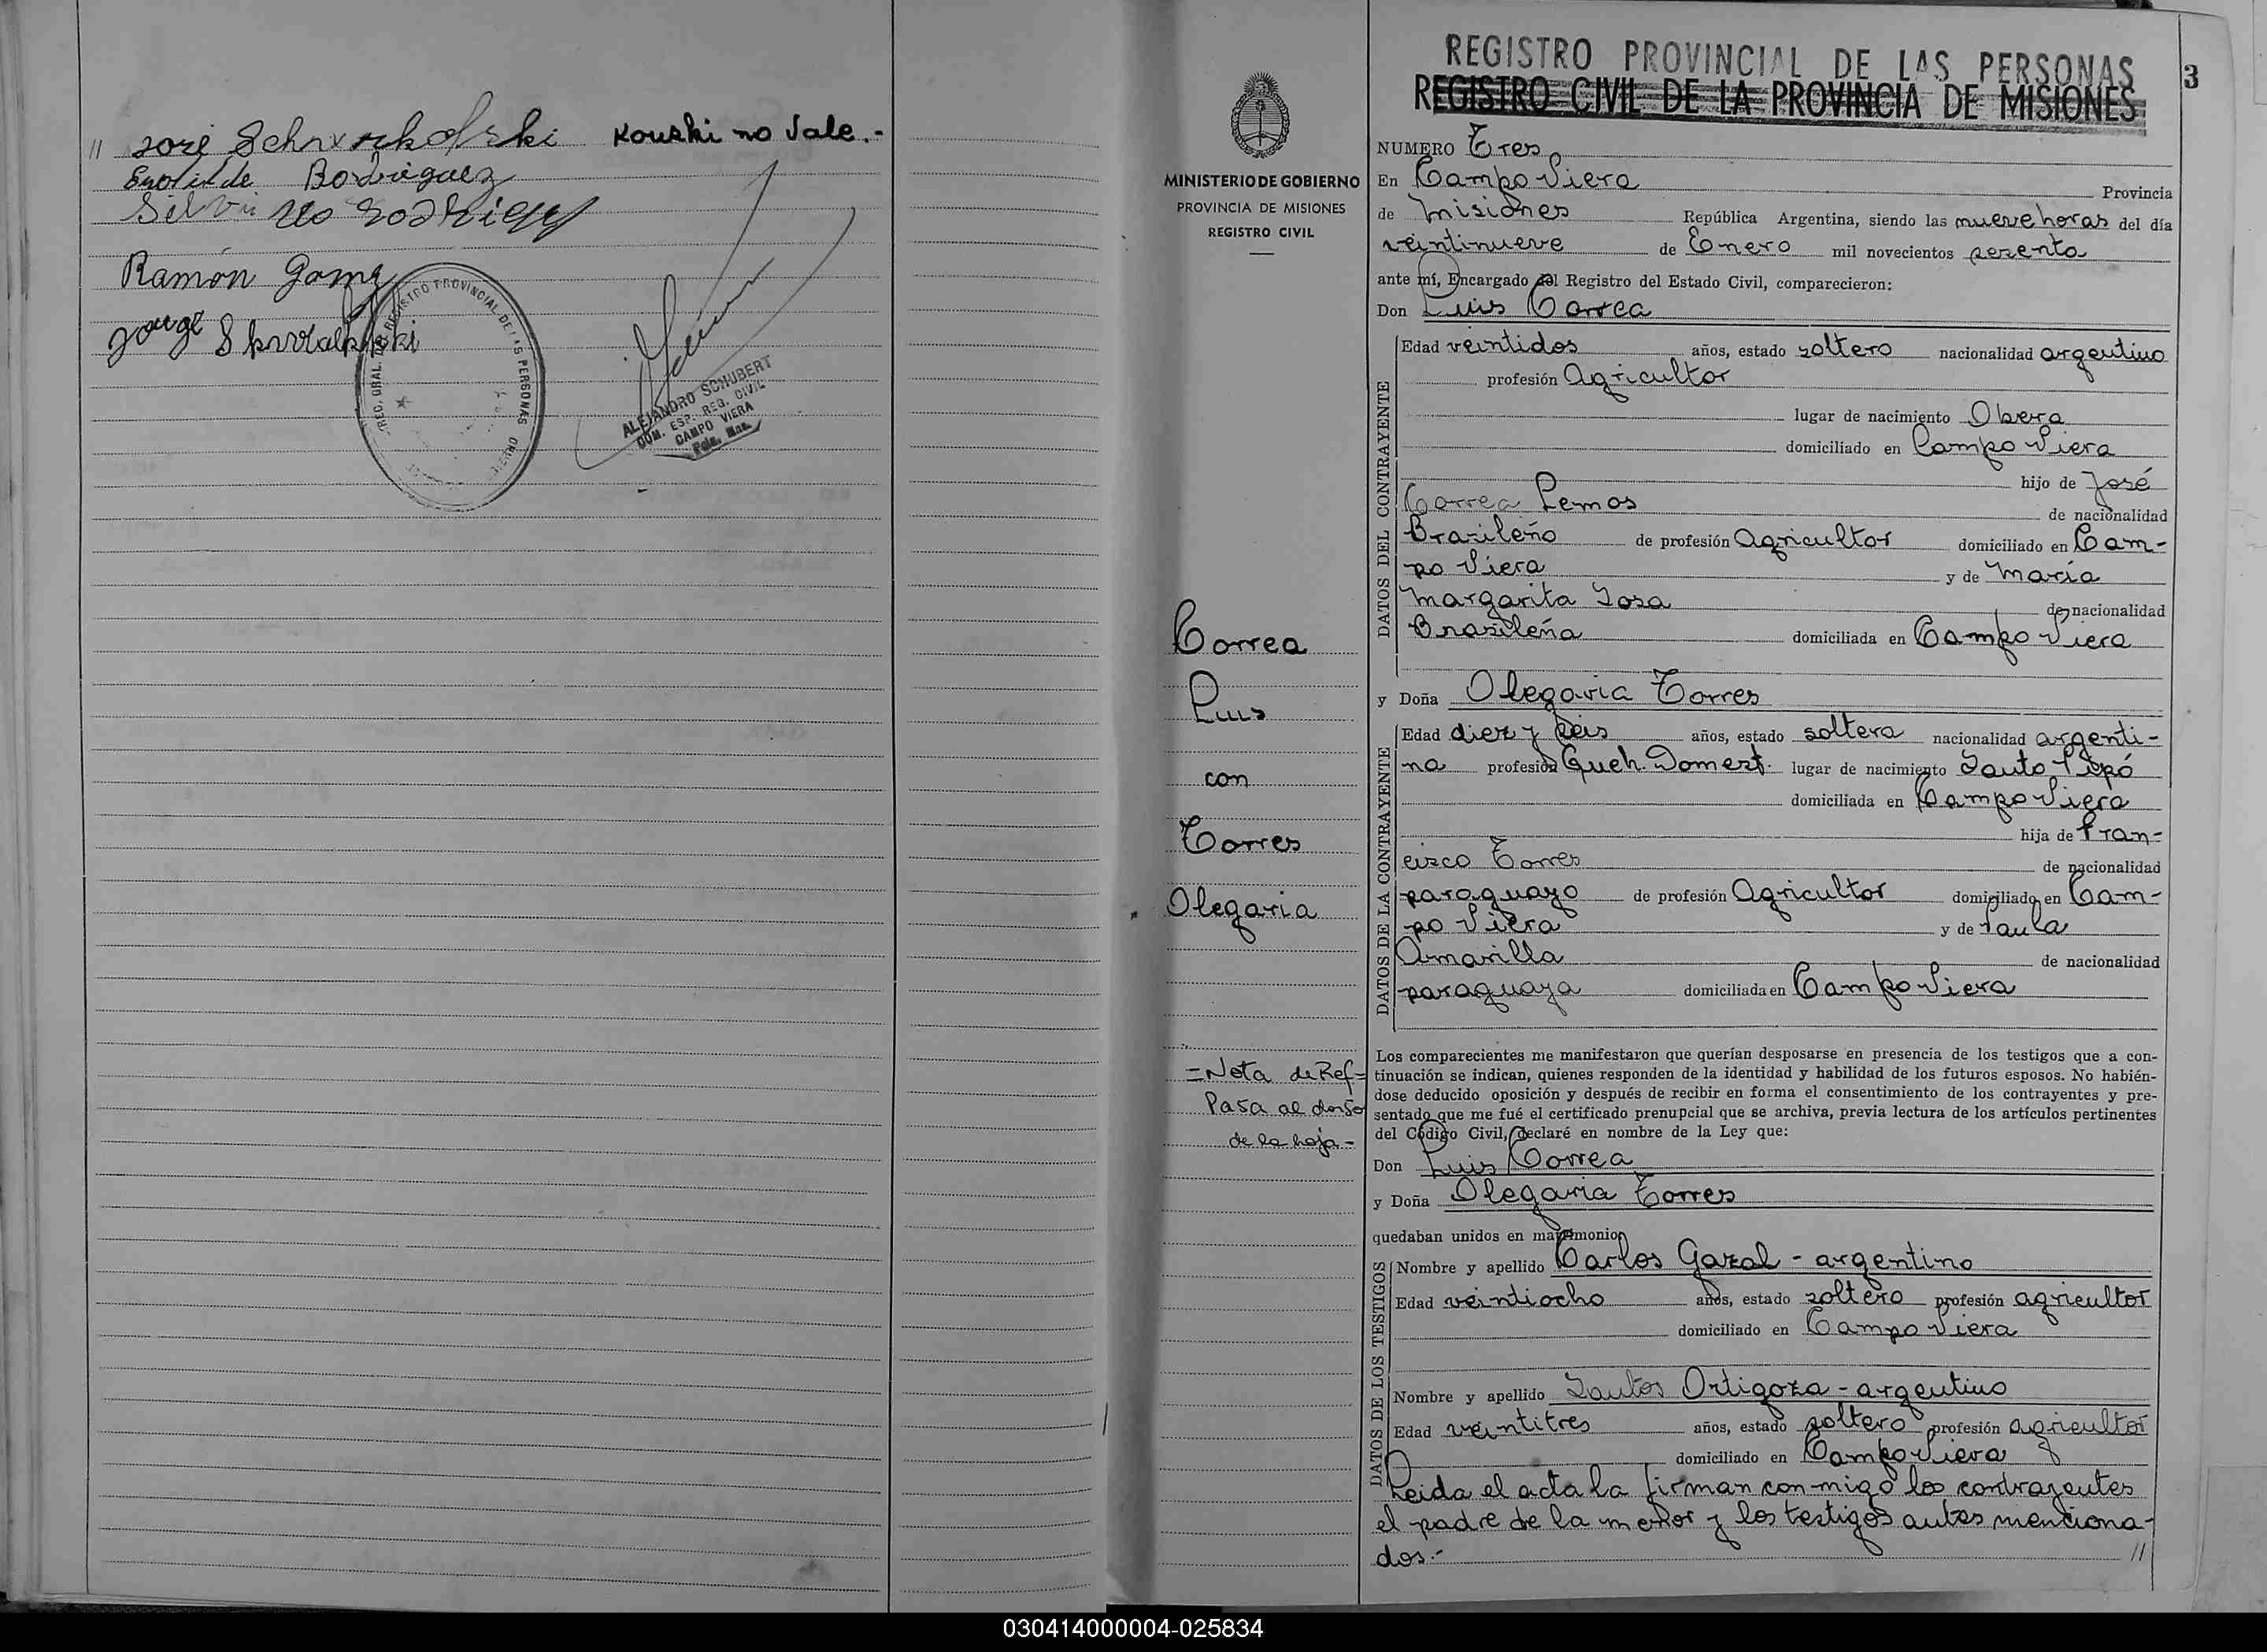 // José
Kouski no vale.-
Rodriguez
Silvi no Rodriguez
Ramón Gomez
REGISTRO PROVINCIAL DE LAS PERSONAS
ALEJANDRO SCHUBERT
COM. ESP. REG. CIVIL
CAMPO VIERA
MINISTERIO DE GOBIERNO
PROVINCIA DE MISIONES
REGISTRO CIVIL
Correa
Luis
con
Torres
Olegaria
=Nota de Ref=
Pasa al dorso
de la hoja-
REGISTRO PROVINCIAL DE LAS PERSONAS
3
REGISTRO CIVIL DE LA PROVINCIA DE MISIONES
NUMERO Tres
En Campo Viera Provincia
de Misiones República Argentina, siendo las nueve horas del día
veintinueve de Enero mil novecientos sesenta
ante mí, Encargado del Registro del Estado Civil, comparecieron:
Don Luis Correa
DATOS DEL CONTRAYENTE
Edad veintidos años, estado soltero nacionalidad argentino
profesión Agricultor
lugar de nacimiento Obera
domiciliado en Campo Viera
hijo de José
Correa Lemos de nacionalidad
Brasileño de profesión Agricultor domiciliado en Cam-
po Viera y de María
Margarita Sosa de nacionalidad
Brasileña domiciliada en Campo Viera
y Doña Olegaria Torres
DATOS DE LA CONTRAYENTE
Edad diez y seis años, estado soltera nacionalidad argenti-
na profesión Queh. Domest. lugar de nacimiento Santo Pipó
domiciliada en Campo Viera
hija de Fran-
cisco Torres de nacionalidad
paraguayo de profesión Agricultor domiciliado en Cam-
po Viera y de Paula
Amarilla de nacionalidad
paraguaya domiciliada en Campo Viera
Los comparecientes me manifestaron que querían desposarse en presencia de los testigos que a con-
tinuación se indican, quienes responden de la identidad y habilidad de los futuros esposos. No habién-
dose deducido oposición y después de recibir en forma el consentimiento de los contrayentes y pre-
sentado que me fué el certificado prenupcial que se archiva, previa lectura de los artículos pertinentes
del Código Civil, declaré en nombre de la Ley que:
Don Luis Correa
y Doña Olegaria Torres
quedaban unidos en matrimonio
DATOS DE LOS TESTIGOS
Nombre y apellido Carlos Gazal - argentino
Edad veintiocho años, estado soltero profesión agricultor
domiciliado en Campo Viera
Nombre y apellido Santos Ortigoza - argentino
Edad veintitres años, estado soltero profesión agricultor
domiciliado en Campo Viera
Leida el acta la firman con migo los contrayentes
el padre de la menor y los testigos antes menciona-
dos.- //
030414000004-025834